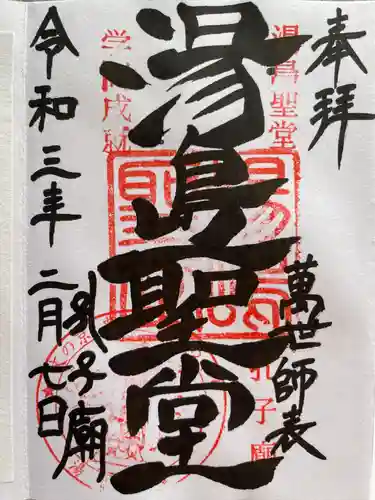 奉拝
湯島聖堂
萬世師表
孔子廟
湯島聖堂
孔子廟
学問成就
令和三年
二月七日